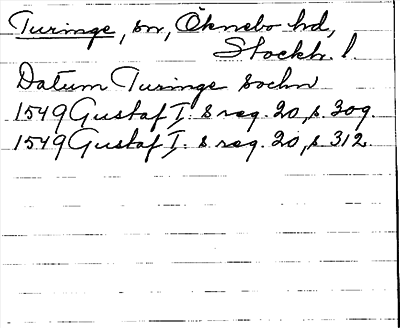 Turinge, sn, Öknebo hd,
Stockh. l.
Datum Turinge sochn
1549 Gustaf I:s reg. 20, s. 309.
1549 Gustaf I:s reg. 20, s. 312.